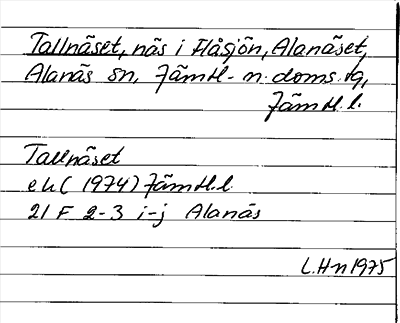 Tallnäset, näs i Flåsjön, Alanäset,
Alanäs sn, Jämtl. n. doms. tg,
Jämtl. l.
Tallnäset
ek (1974) Jämtl. l.
21 F 2-3 i-j Alanäs
L.Hn 1975